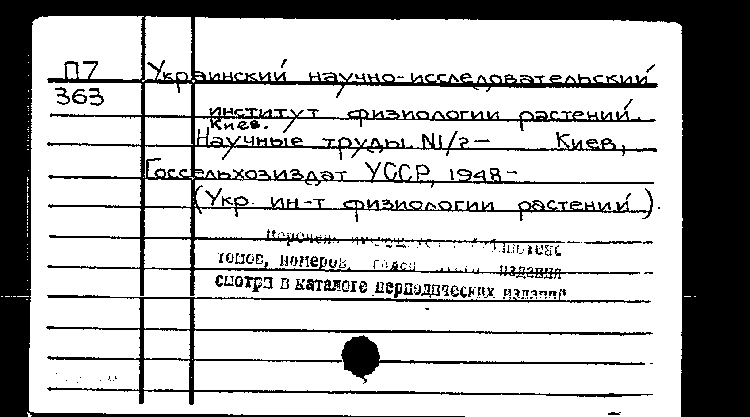 П7 Украинский научно-исследовательский
363
институт физиологии растений.
Киев.
Научные труды. N1/2— Киев,
Госсельхозиздат УССР, 1948-
(Укр. ин-т физиологии растений).
томов, номеров, издания
смотри в каталоге периодических изданий